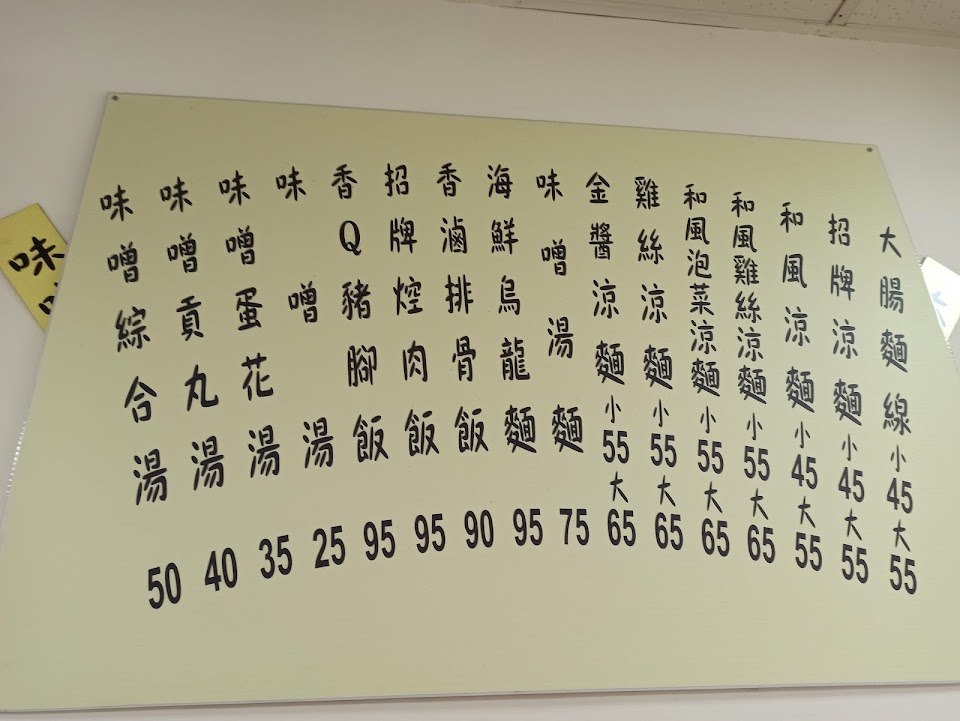 大腸麵線小45大55
招牌涼麵小45大55
和風涼麵小45大55
和風雞絲涼麵小55大65
和風泡菜涼麵小55大65
雞絲涼麵小55大65
金醬涼麵小55大65
味噌湯麵75
海鮮烏龍麵95
香滷排骨飯90
招牌焢肉飯95
香Q豬腳飯95
味噌湯25
味噌蛋花湯35
味噌貢丸湯40
味噌綜合湯50
味